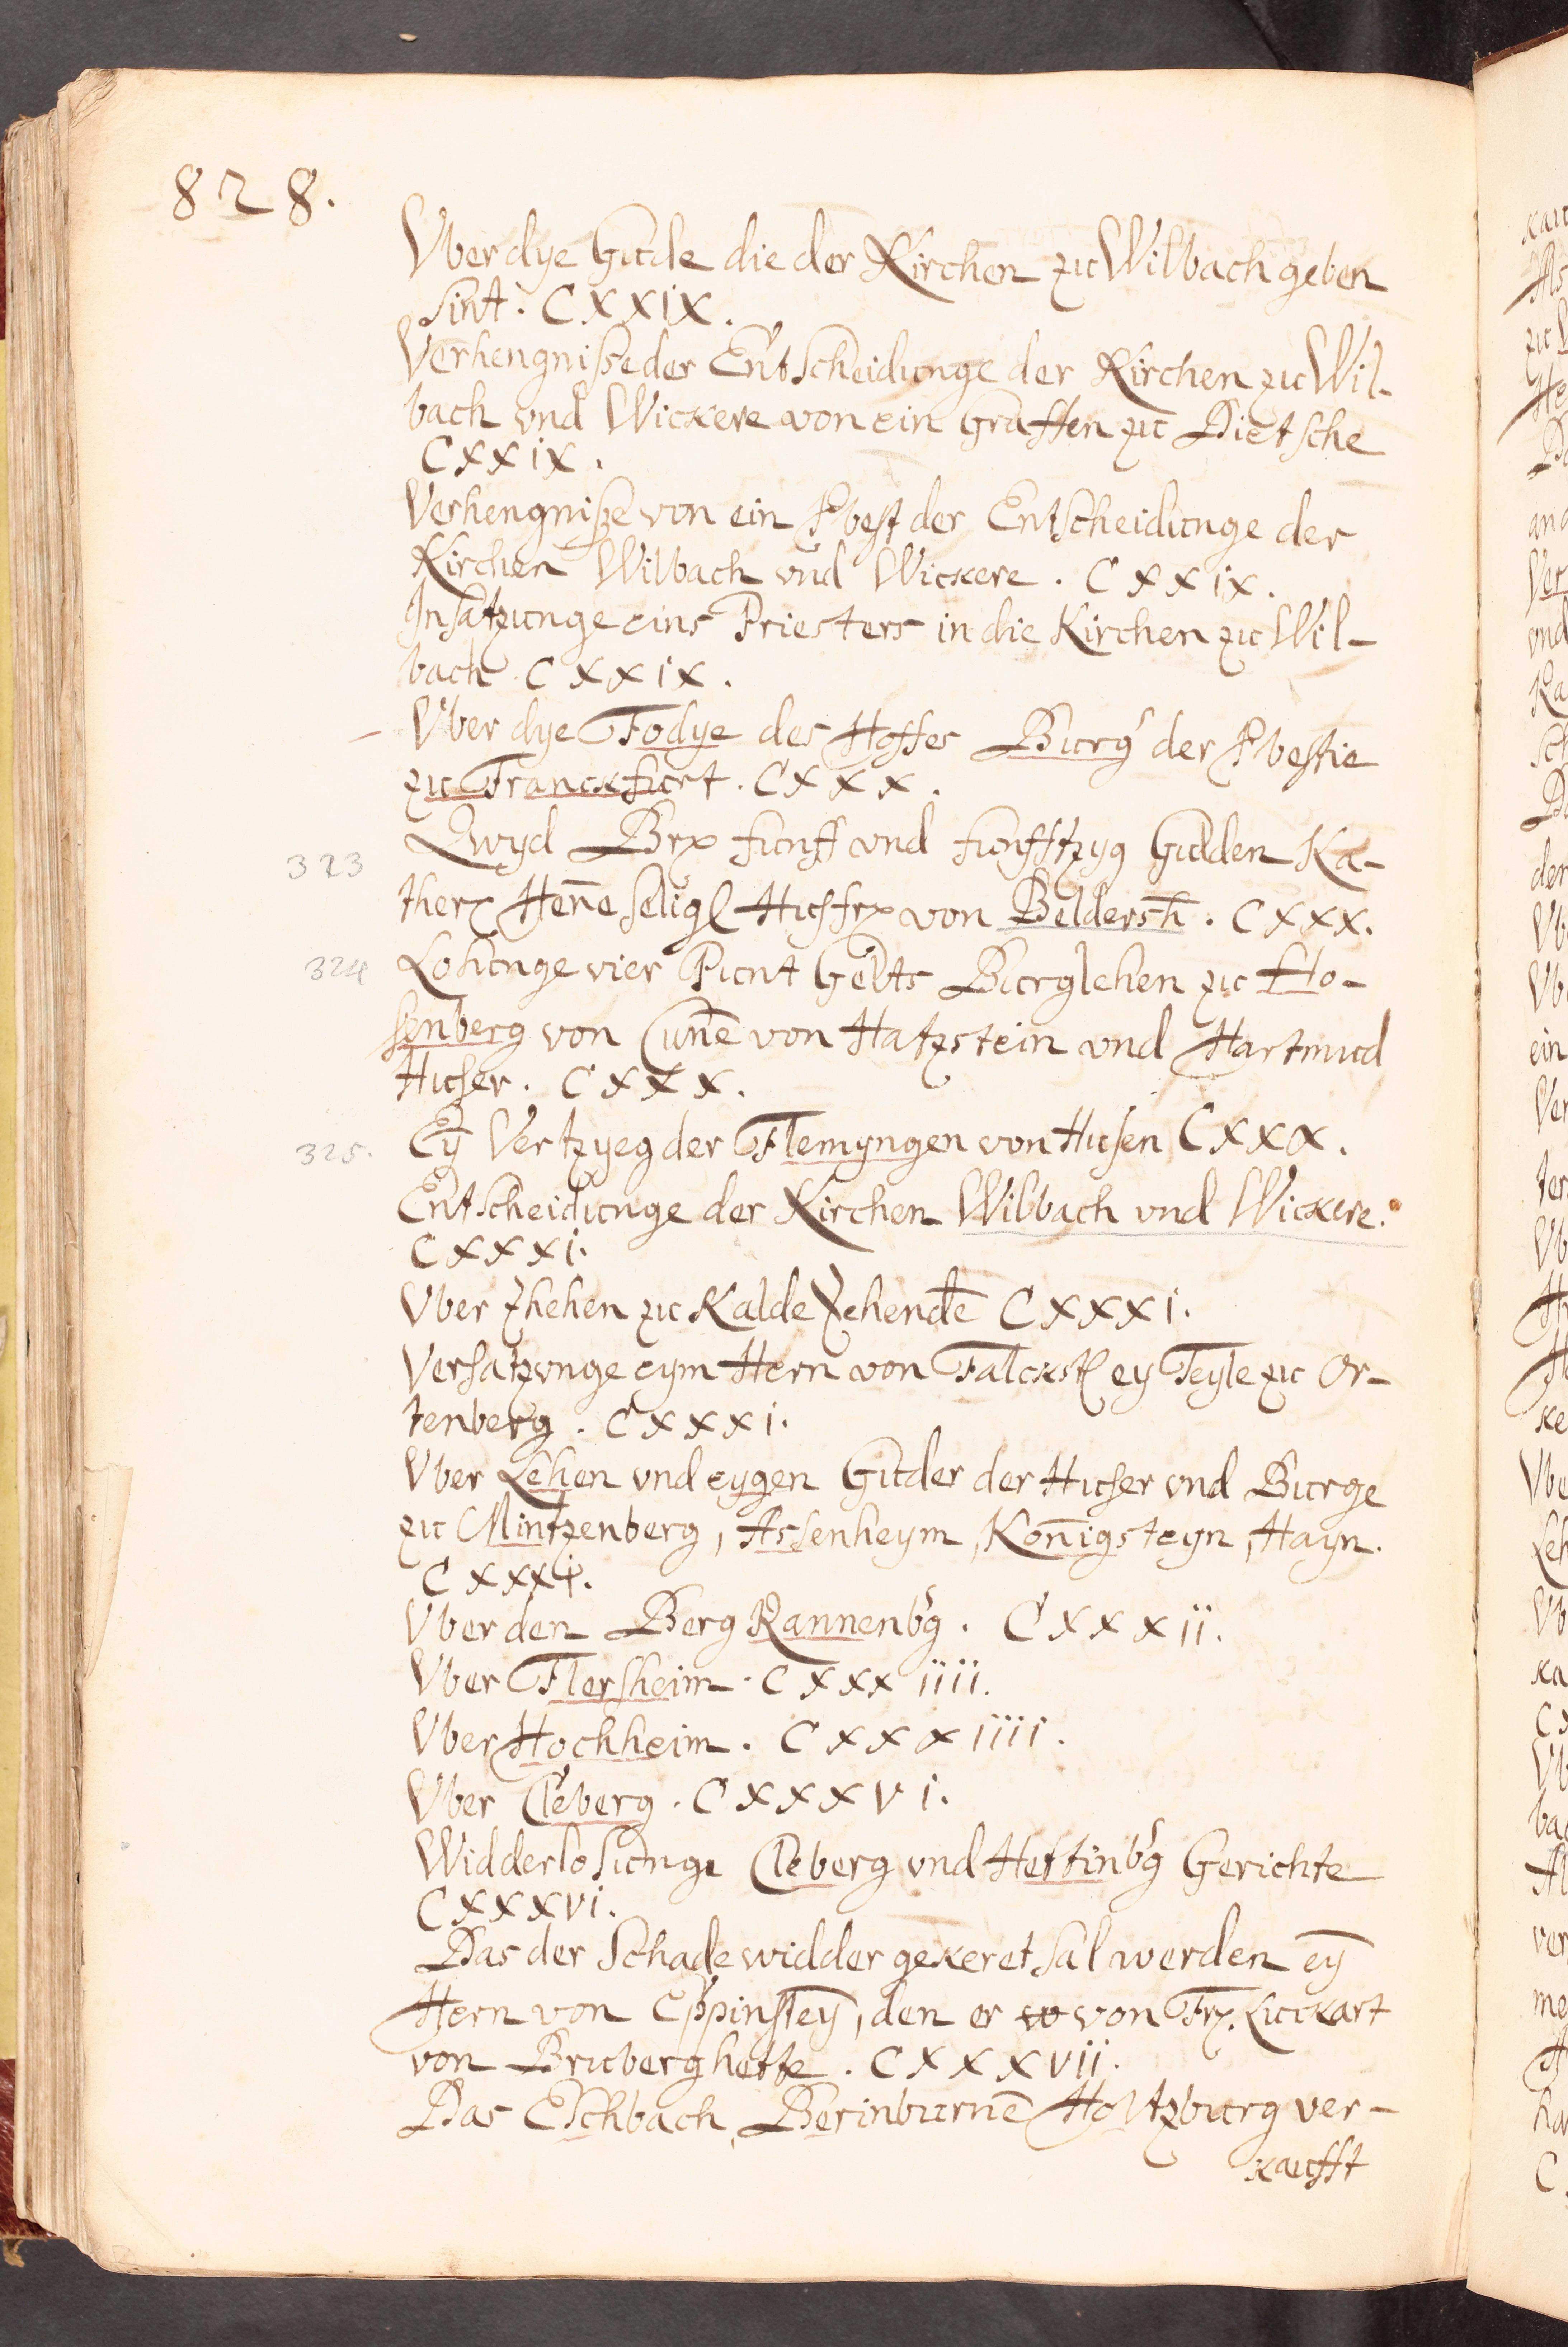 828.
Vber dye Gude die der Kirchen zu Wilbach geben
sint. CXXIX.
Verhengnisse der Entscheidunge der Kirchen zu Wil-
bach vnd Wickere von ein Graffen zu Dietsche
CXXIX.
Verhengnisse von ein Pbest der Entscheidunge der
Kirchen Wilbach vnd Wickere. CXXIX.
Insatzunge eins Priesters in die Kirchen zu Wil-
bach CXXIX.
Vber dye Fodye des Hoffes Burg der Pbestie
zu Franckfurt. CXXX.
323 Qwyd funff vnd funfftzyg Gulden Ka-
ther Heñe selig Husfr von Beldersh. CXXX.
324 Losunge vier Punt Gelts Burglehen zu Ho-
senberg von Cuñe von Hatzstein vnd Hartmud
Huser. CXXX.
325. Eȳ Vertzyeg der Flemyngen von Husen CXXX.
Entscheidunge der Kirchen Wilbach vnd Wickere.
CXXXI.
Vber Zhehen zu Kalde Zehende CXXXI.
Versatzunge eym Hern von Falckst ey Teyle zu Or-
tenberg. CXXXI.
Vber Lehen vnd eygen Guder der Huser vnd Burge
zu Mintzenberg, Assenheym, Königsteyn, Hayn.
CXXXI.
Vber den Berg Rannenbg. CXXXII.
Vber Flersheim. CXXXIIII.
Vber Hochheim. CXXXIIII.
Vber Cleberg. CXXXVI.
Widderlosunge Cleberg vnd Hettinbg Gerichte
CXXXVI.
Das der Schade widder gekeret sal werden eȳ
Hern von Eppinsteȳ, den er von Fr. Luckart
von Bruberg hette. CXXXVII.
Das Eschbach, Berinburnē Holtzburg ver-
kaufft